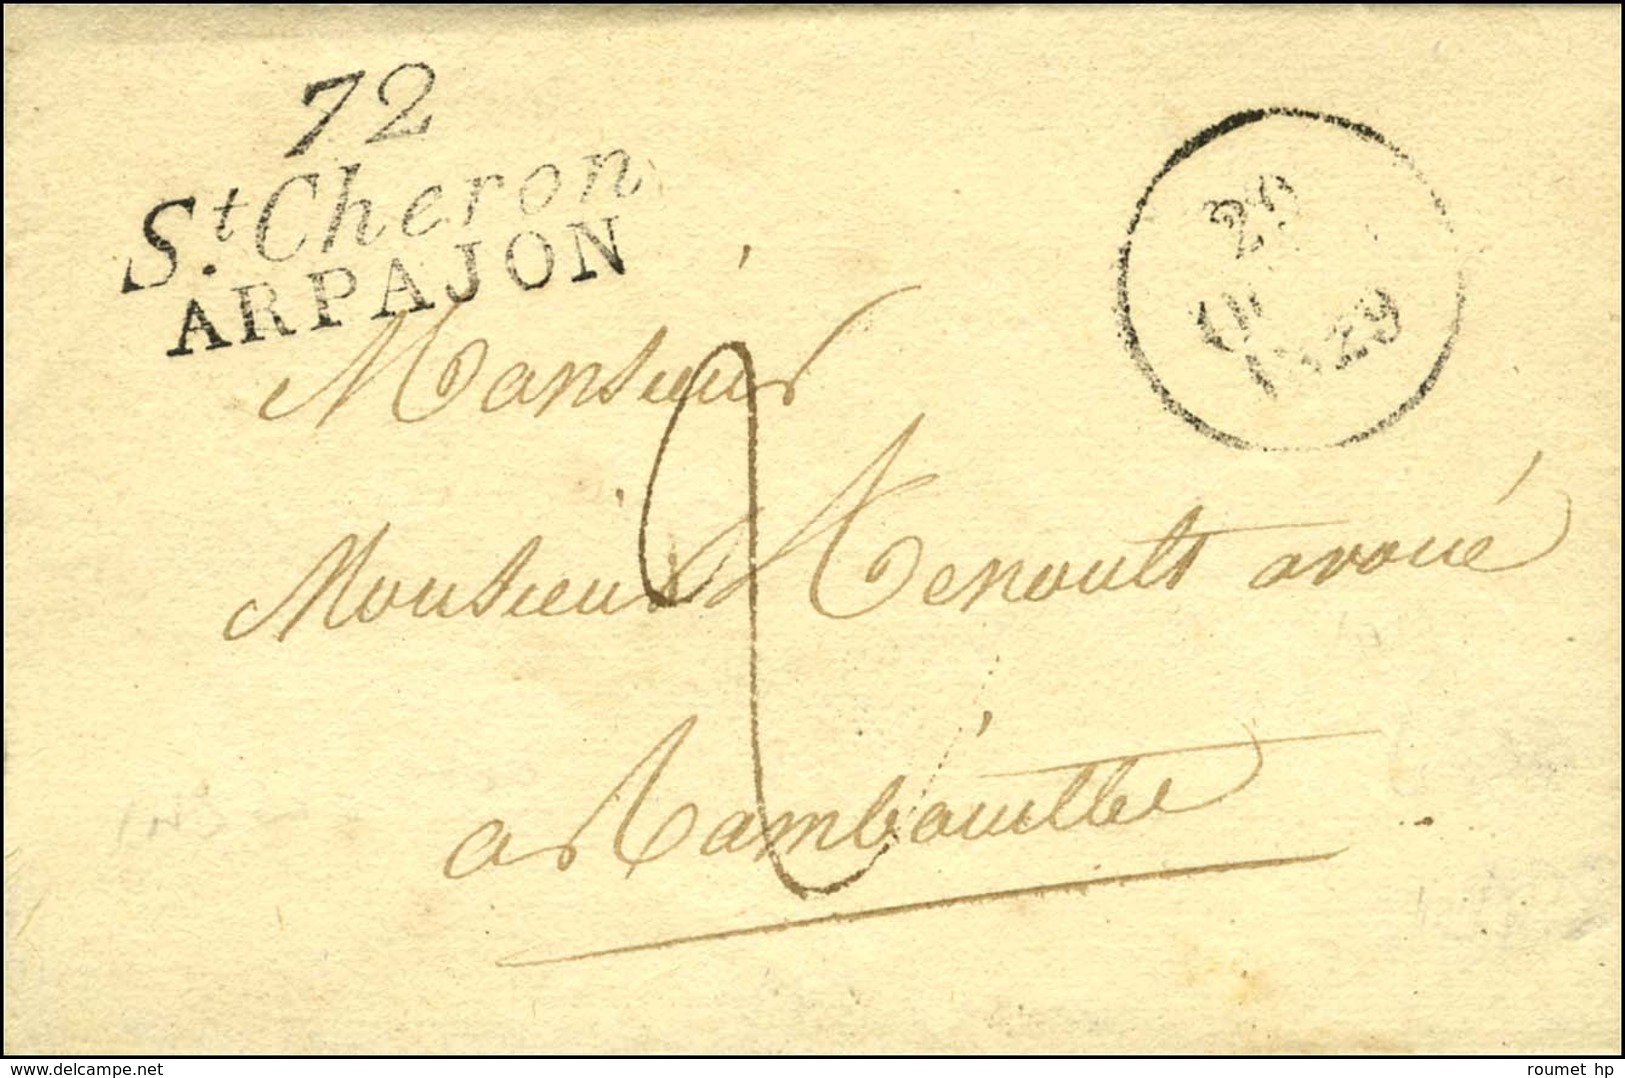 72
St. Cheron
ARPAJON
29
1829
Monsieur
2
Monsieur Renoult avoué
a Rambouillet
delcampe.net
roumet hp